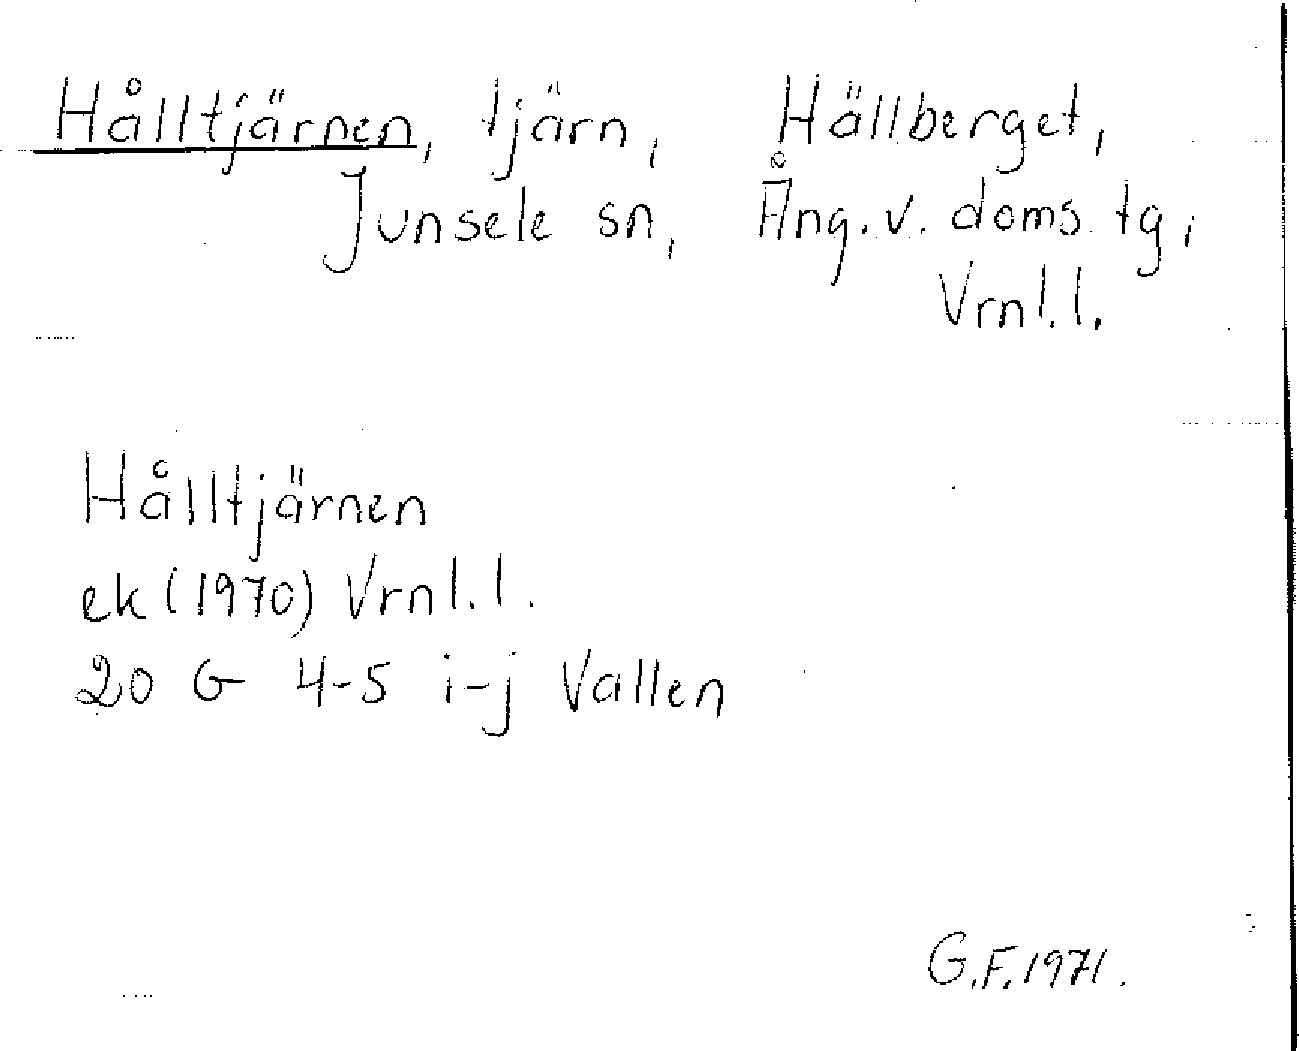 Hålltjärnen, tjärn, Hällberget,
Junsele sn, Ång. v. doms. tg,
Vrnl. l.
Hålltjärnen
ek (1970) Vrnl. l.
20 G 4-5 i-j Vallen
G.F. 1971.